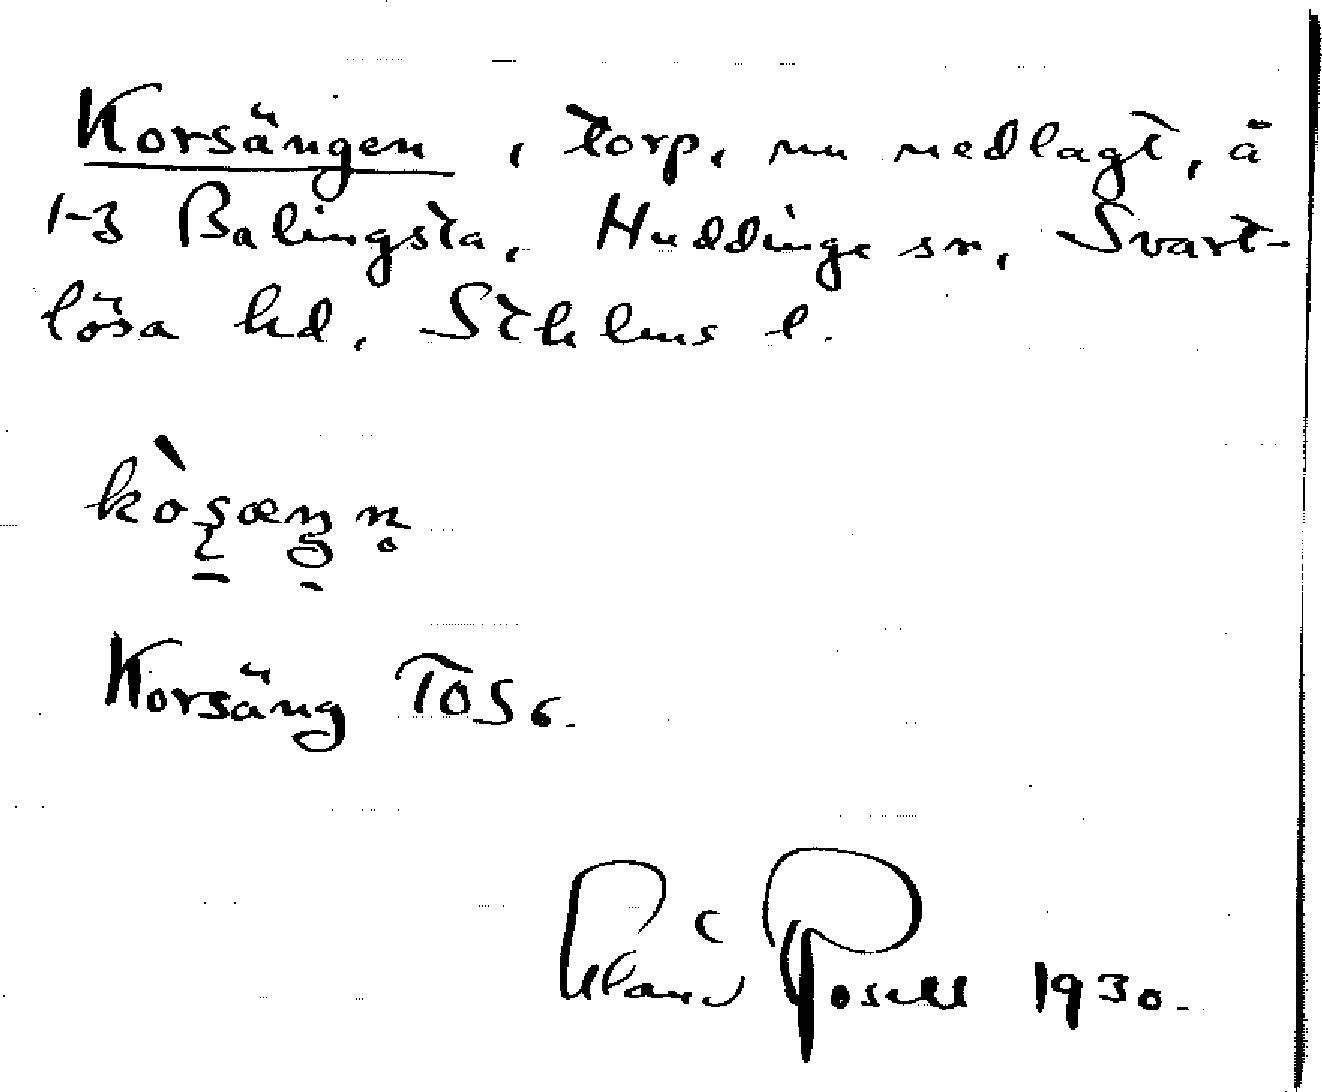 Korsängen, torp, nu nedlagt, å
1-3 Balingsta, Huddinge sn, Svart-
lösa hd, Sthlms l.
Korsäng TOS 6.
1930.